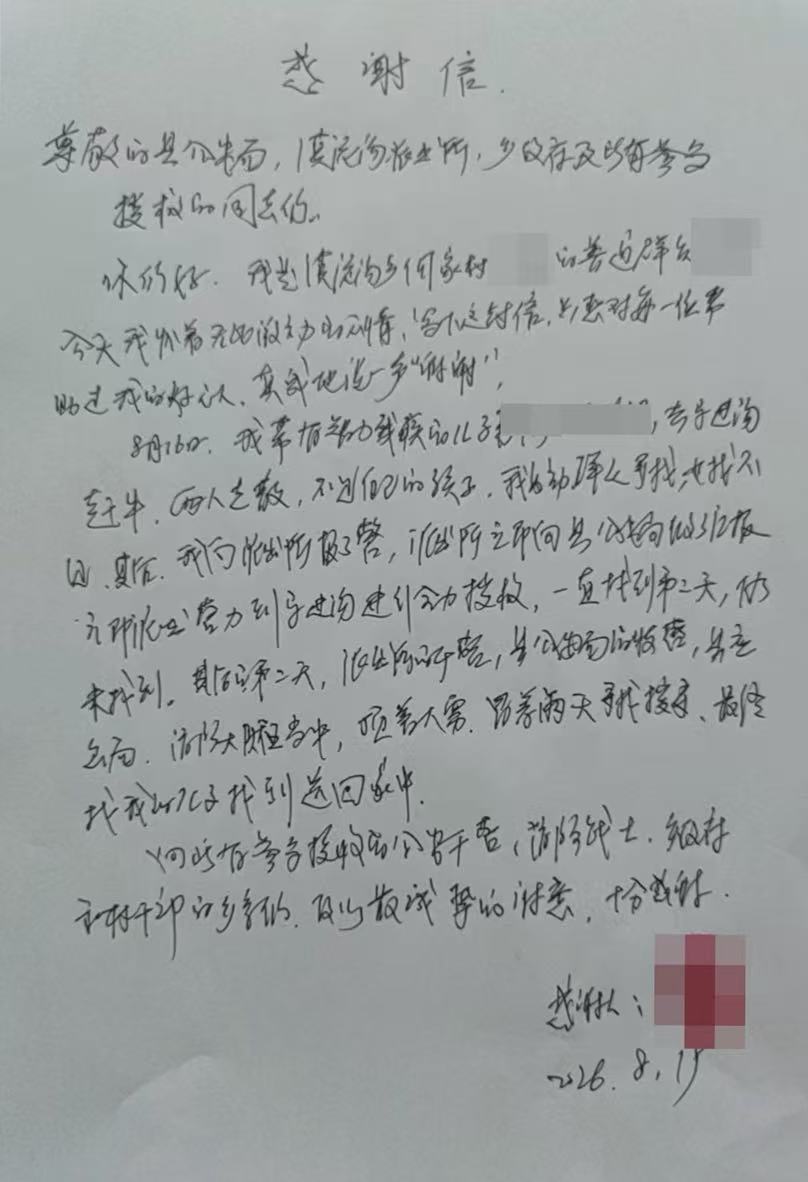 感谢信.
尊敬的县公安局,漠泥沟派出所,乡政府及所有参与
搜救的同志们。
你们好.我是漠泥沟乡何家村 的普通群众
今天我怀着无比激动的心情,写下这封信,只想对每一位帮
助过我的好心人、真诚地说一声“谢谢”,
8月16日.我带有智力残疾的儿子 ,去 沟
赶牛,两人走散,不见自己的孩子.我 寻找,也找不
见.其后.我向派出所报了警,派出所立即向县公安局做了汇报
立即派出警力到 沟进行全力搜救,一直找到第二天,仍
未找到。其后第二天,派出所 警,县公安局的 警,县应
急局.消防大队 当中,顶着大雾.冒着雨天寻找搜寻、最终
找我的儿子找到送回家中.
向所有参与搜救的公安干警,消防战士.乡政府
和村干部的乡亲们. 诚挚的谢意,十分感谢.
感谢人:
2026.8.19